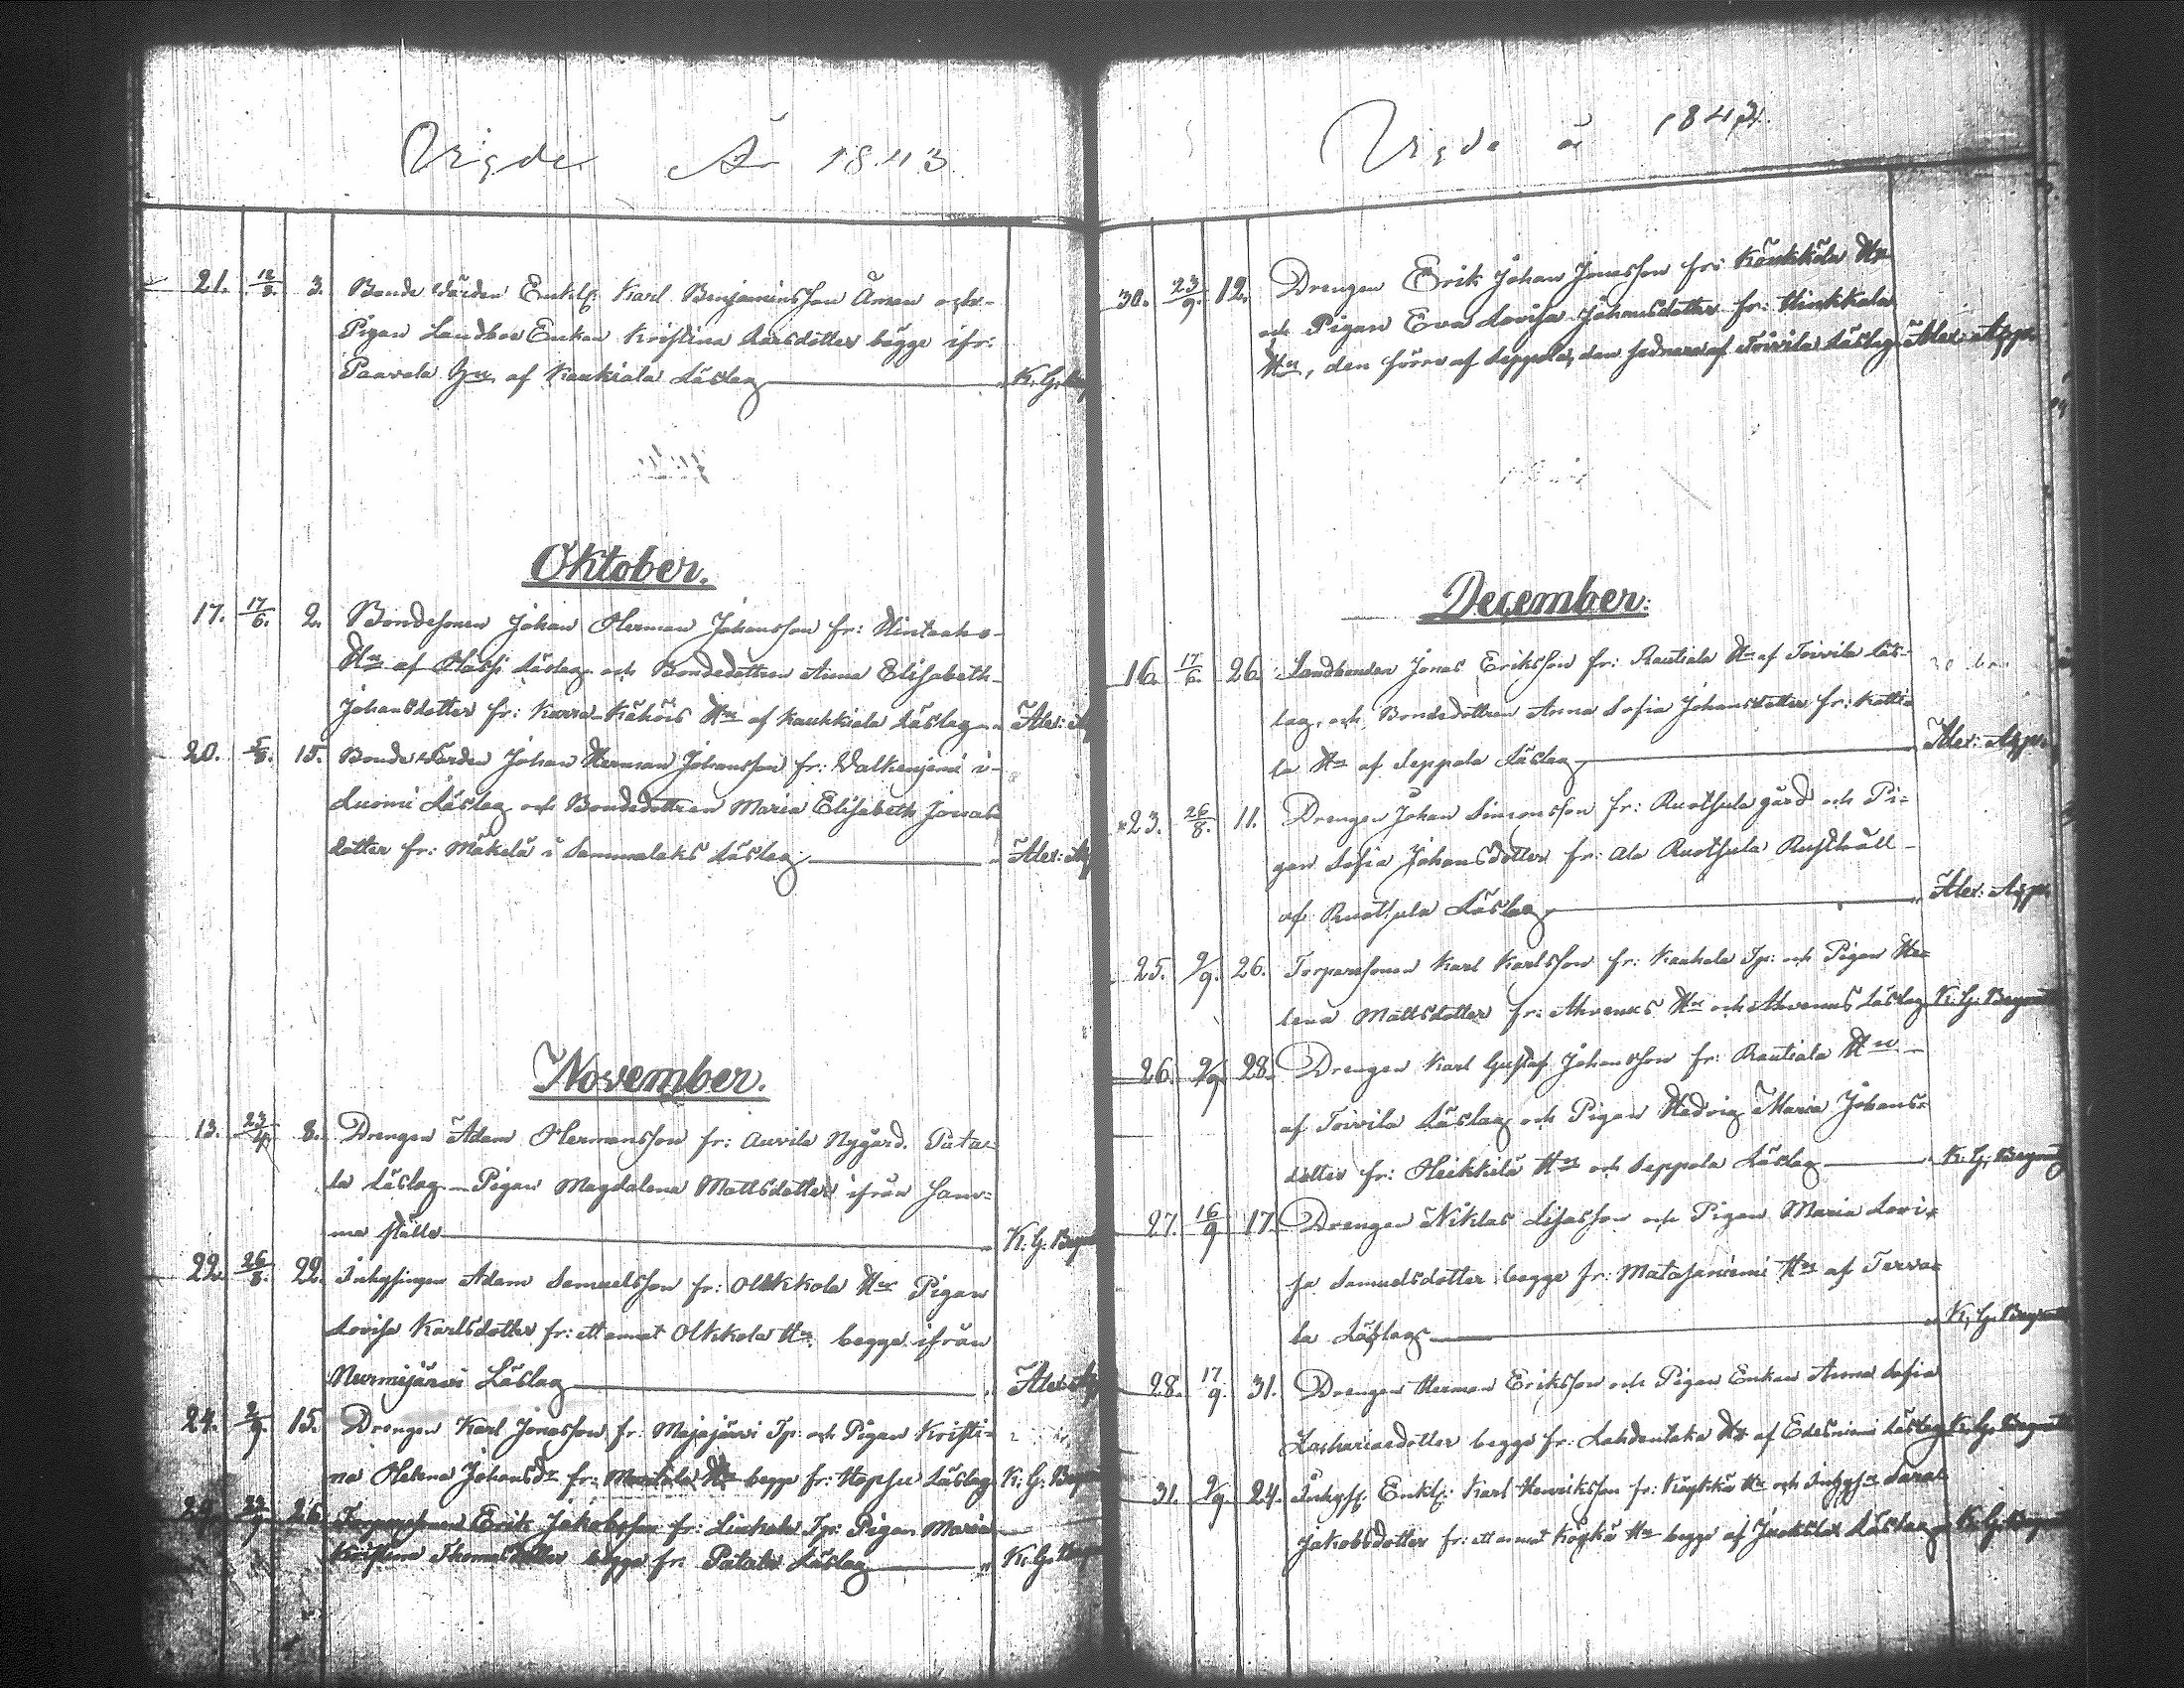 Vigde År 1843.
21. 12/8. 3. Bonde Värden Enkl: Karl Benjaminsson Ämen och
Pigan Landbos Enkan Kristina Larsdotter bägge ifr:
Paavola Hn af Kaukiala Läslag K. G.
Oktober.
17. 17/6. 2. Bondesonen Johan Herman Johansson fr: Hintsaho
Hn af Hassi Läslag och Bondedottren Anna Elisabeth
Johansdotter fr: Karra-Käköis Hn af Kaukkiala Läslag Alex:
20. 5/8. 15. Bonde Värden Johan Herman Johansson fr: Valkenjemi i
Luomi Läslag och Bondedottren Maria Elisabeth Jonas
dotter fr: Mäkelä i Sammalaks Läslag Alex:
November.
13. 23/4. 8. Drengen Adam Hermansson fr: Auvila Nygård. Pata=
la Läslag Pigan Magdalena Mattsdotter ifrån sam=
ma ställe K. G.
22. 26/8. 22. Inhysingen Adam Samuelsson fr: Olkkola Hn Pigan
Lovisa Karlsdotter fr: ett annat Olkkola Hn begge ifrån
Nurmijärvi Läslag Alex:
24. 2/9. 15. Drengen Karl Jonasson fr: Majajärvi Tp: och Pigan Kristi=
na Helena Johansdr fr: Hn begge fr: Läslag K. G.
26. Torparesonen Erik Jakobsson fr: Tp: Pigan Maria
Kristina Thomasdotter begge fr: Patala Läslag K. G.
Vigde år 1843.
30. 23/9. 12. Drengen Erik Johan Jonasson fr: Kaukkala Hn
och Pigan Eva Lovisa Johansdotter fr: Hinkkala
Hn, den förra af Seppola, den sednare af Toivila Läslag Alex: App.
December.
16. 17/6. 26. Landbonden Jonas Eriksson fr: Rautiala Hn af Toivila Läs=
lag, och Bondedottren Anna Sofia Johansdotter fr: Katti=
la Hn af Seppola Läslag Alex: App.
23. 26/8. 11. Drengen Johan Simonsson fr: Ruothula gård och Pi=
gan Sofia Johansdotter fr: Ala Ruothula Rusthåll
af Ruothula Läslag Alex: App.
25. 2/9. 26. Torparesonen Karl Karlsson fr: Kauhala Tp: och Pigan He=
lena Mattsdotter fr: Ahvenus Hn och Ahvenus Läslag K. G.
26. 2/9. 28. Drengen Karl Gustaf Johansson fr: Rautiala Hn
af Toivila Läslag och Pigan Hedvig Maria Johans=
dotter fr: Heikkilä Hn och Seppola Läslag K. G.
27. 16/9 17. Drengen Niklas och Pigan Maria Lovi=
sa Samuelsdotter begge fr: Matasaniemi Hn af Terva=
la Läslag K. G.
28. 17/9. 31. Drengen Herman Eriksson och Pigan Enkan Anna Sofia
Zachariasdotter begge fr: Lahdentaka Hn af Edesniemi Läslag K. G.
31. 2/9. 24. Inhys. Enkl: Karl Henriksson fr: Köykkä Hn och Sara
Jakobsdotter fr: ett annat Köykkä Hn begge af Läslag K. G.